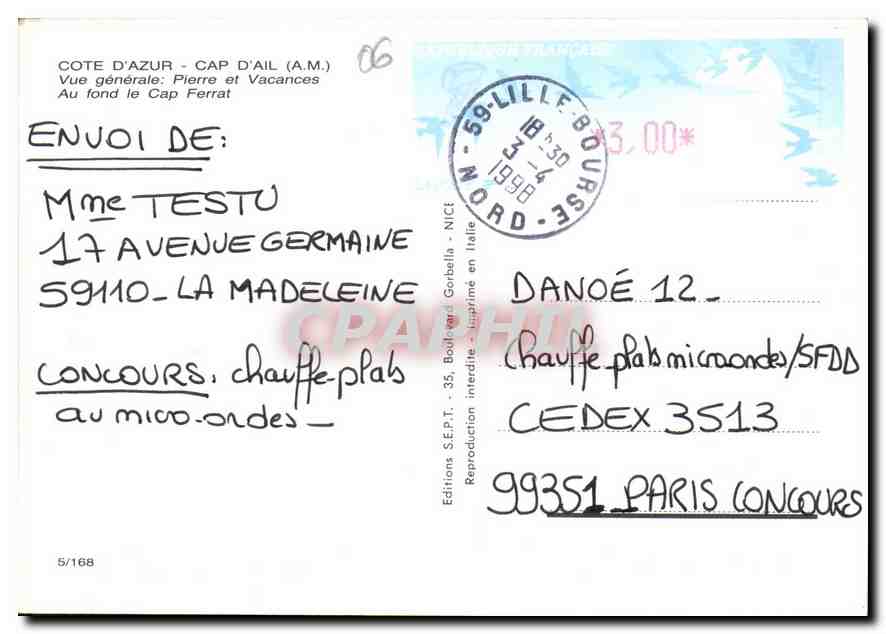 COTE D'AZUR - CAP D'AIL (A.M.)
Vue générale: Pierre et Vacances
Au fond le Cap Ferrat
06
REPUBLIQUE FRANÇAISE
*3,00*
59-LILLE-BOURSE
18h30
3-4
1998
NORD
ENVOI DE:
Mme TESTU
17 AVENUE GERMAINE
59110_LA MADELEINE
CONCOURS: chauffe-plats
au micro-ondes_
Editions S.E.P.T. - 35, Boulevard Gorbella - NICE
Reproduction interdite - Imprimé en Italie
DANOÉ 12_
chauffe-plats micro-ondes/SFDD
CEDEX 3513
99351_PARIS CONCOURS
CPAPHIL
5/168